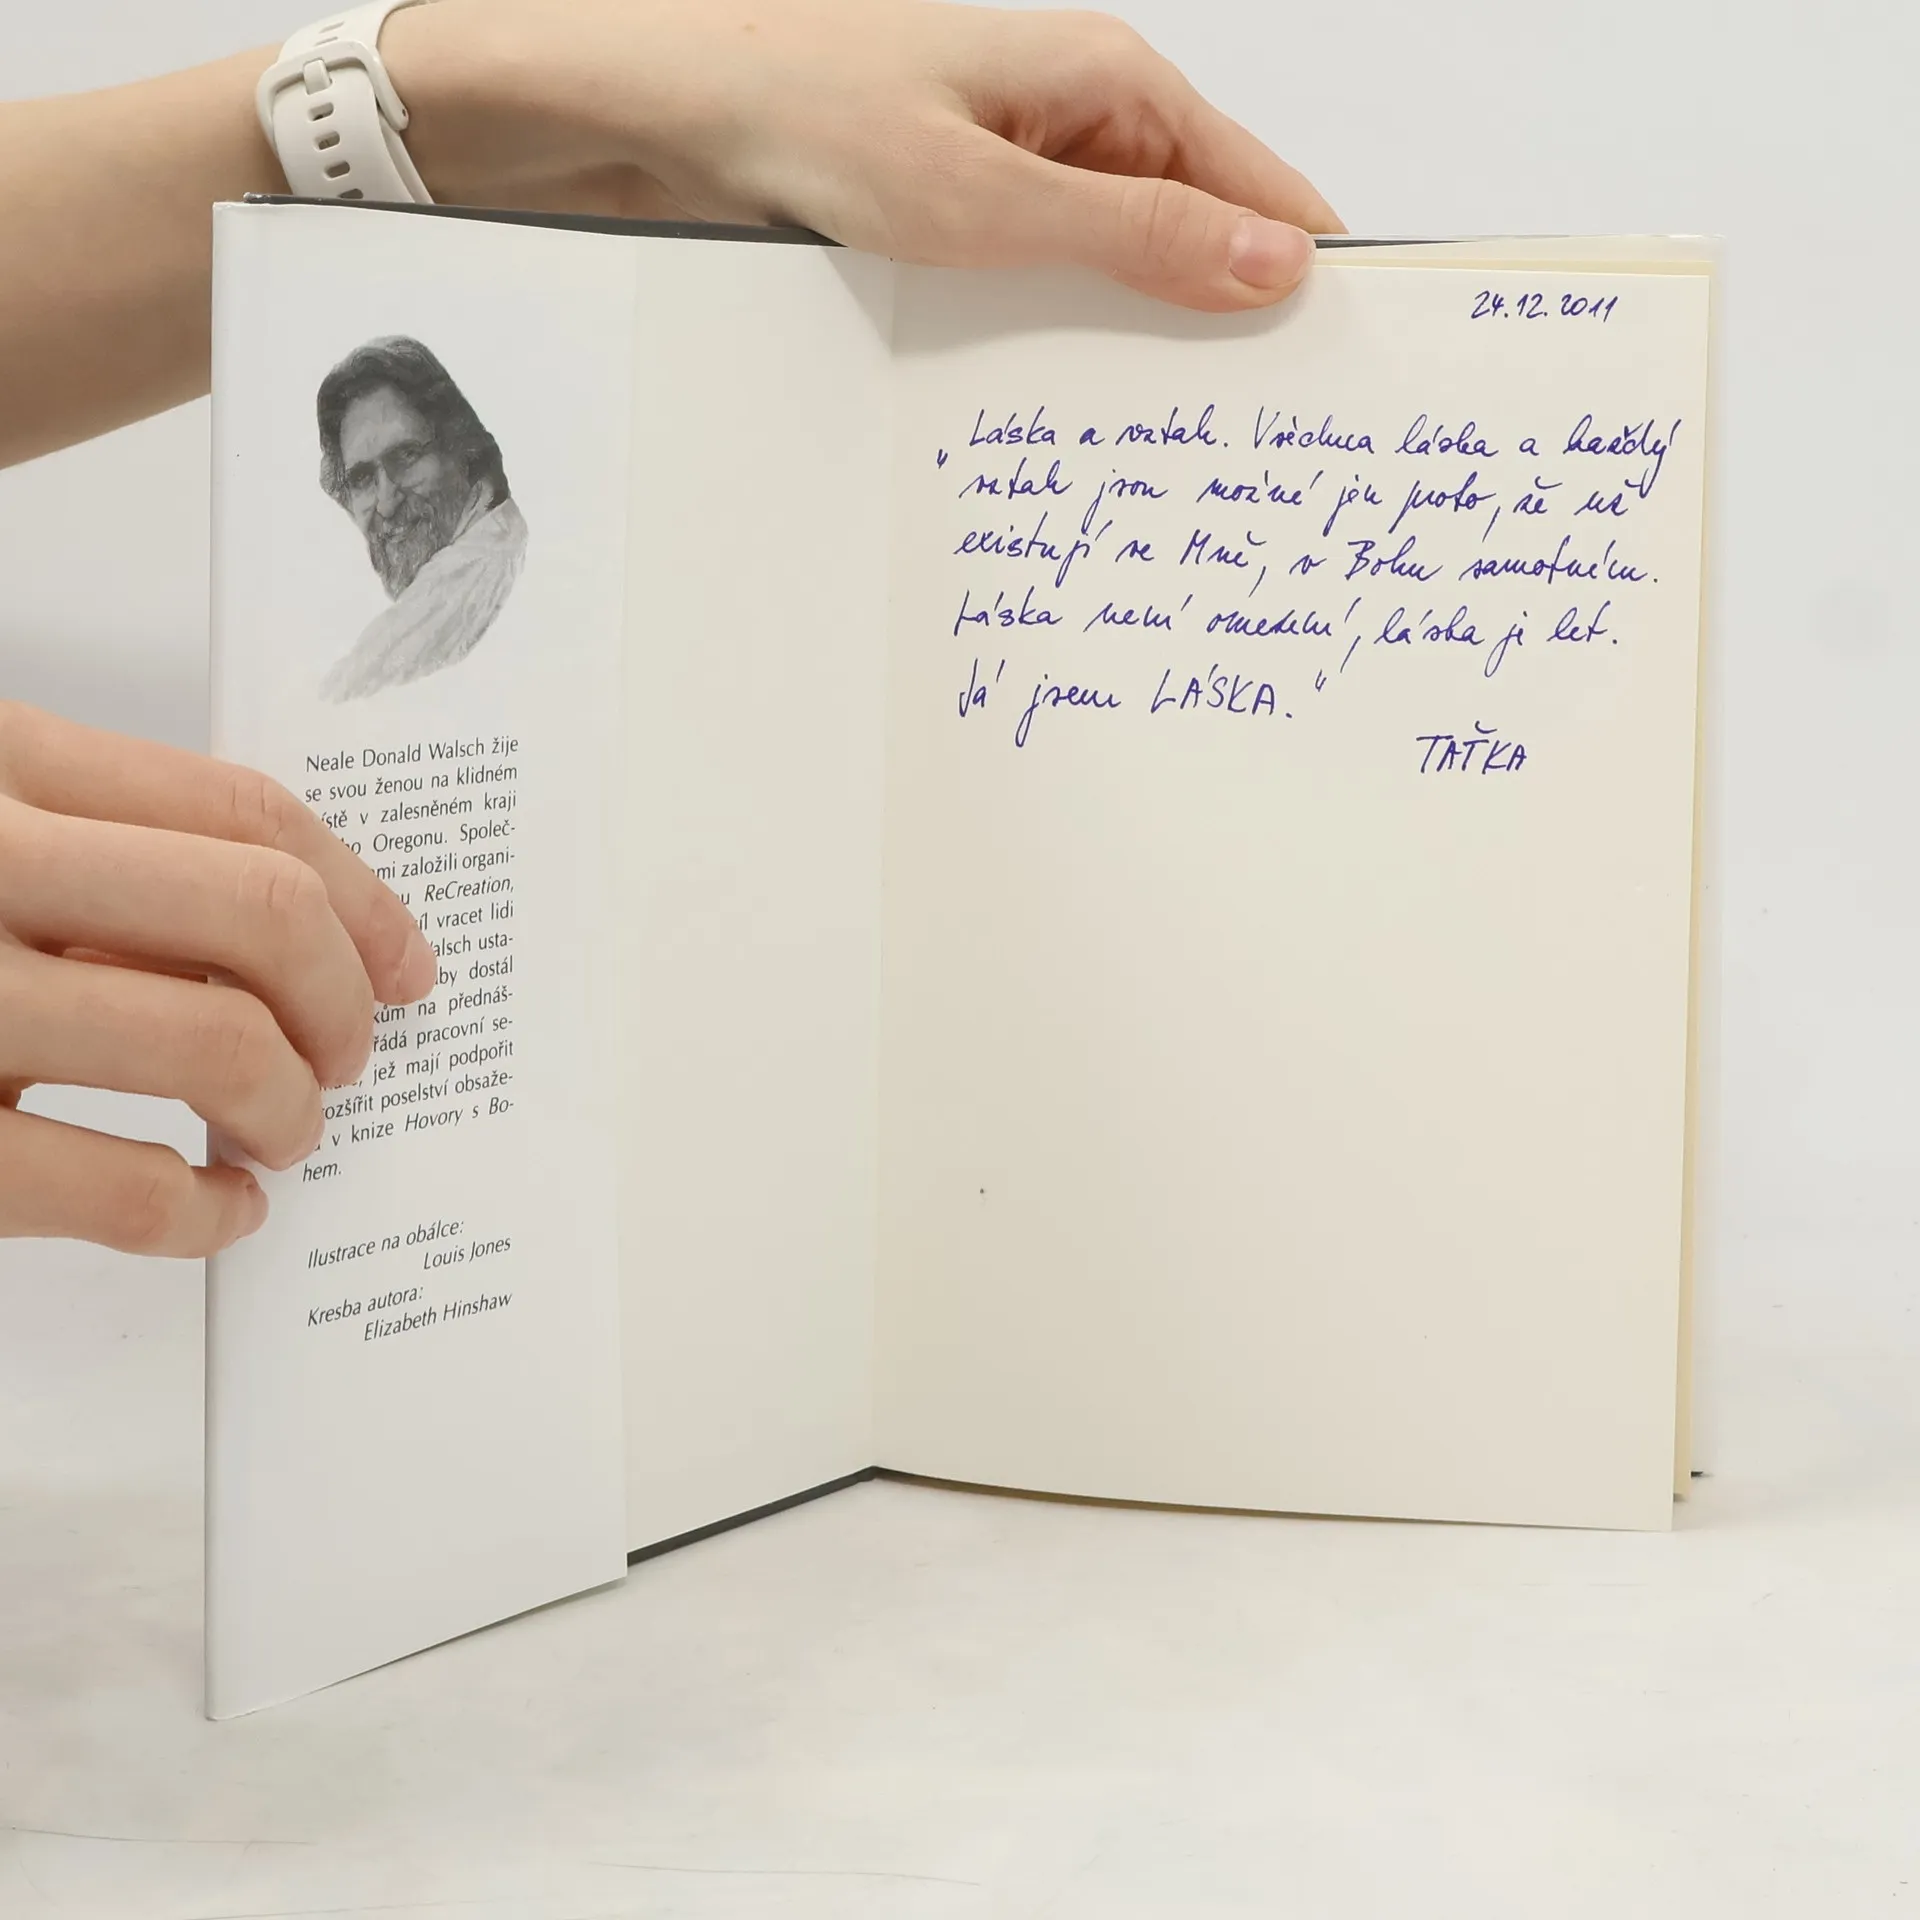 Neale Donald Walsch žije
se svou ženou na klidném
ístě v zalesněném kraji
ho Oregonu. Společ-
mi založili organi-
u ReCreation,
íl vracet lidi
alsch usta-
by dostál
kům na přednáš-
řádá pracovní se-
jež mají podpořit
rozšířit poselství obsaže-
v knize Hovory s Bo-
hem.
Ilustrace na obálce:
Louis Jones
Kresba autora:
Elizabeth Hinshaw
24.12.2011
„Láska a vztah. Všechna láska a každý
vztah jsou možné jen proto, že už
existují ve Mně, v Bohu samotném.
Láska není omezení, láska je let.
Já jsem LÁSKA.“
TAŤKA